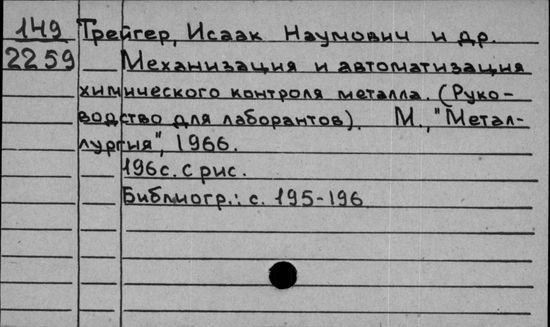 149 Трейгер, Исаак Наумович и др.
2259 Механизация и автоматизация
химического контроля металла. (Руко-
водство для лаборантов). М., "Метал-
лургия", 1966.
196с. с рис.
Библиогр.: с. 195-196